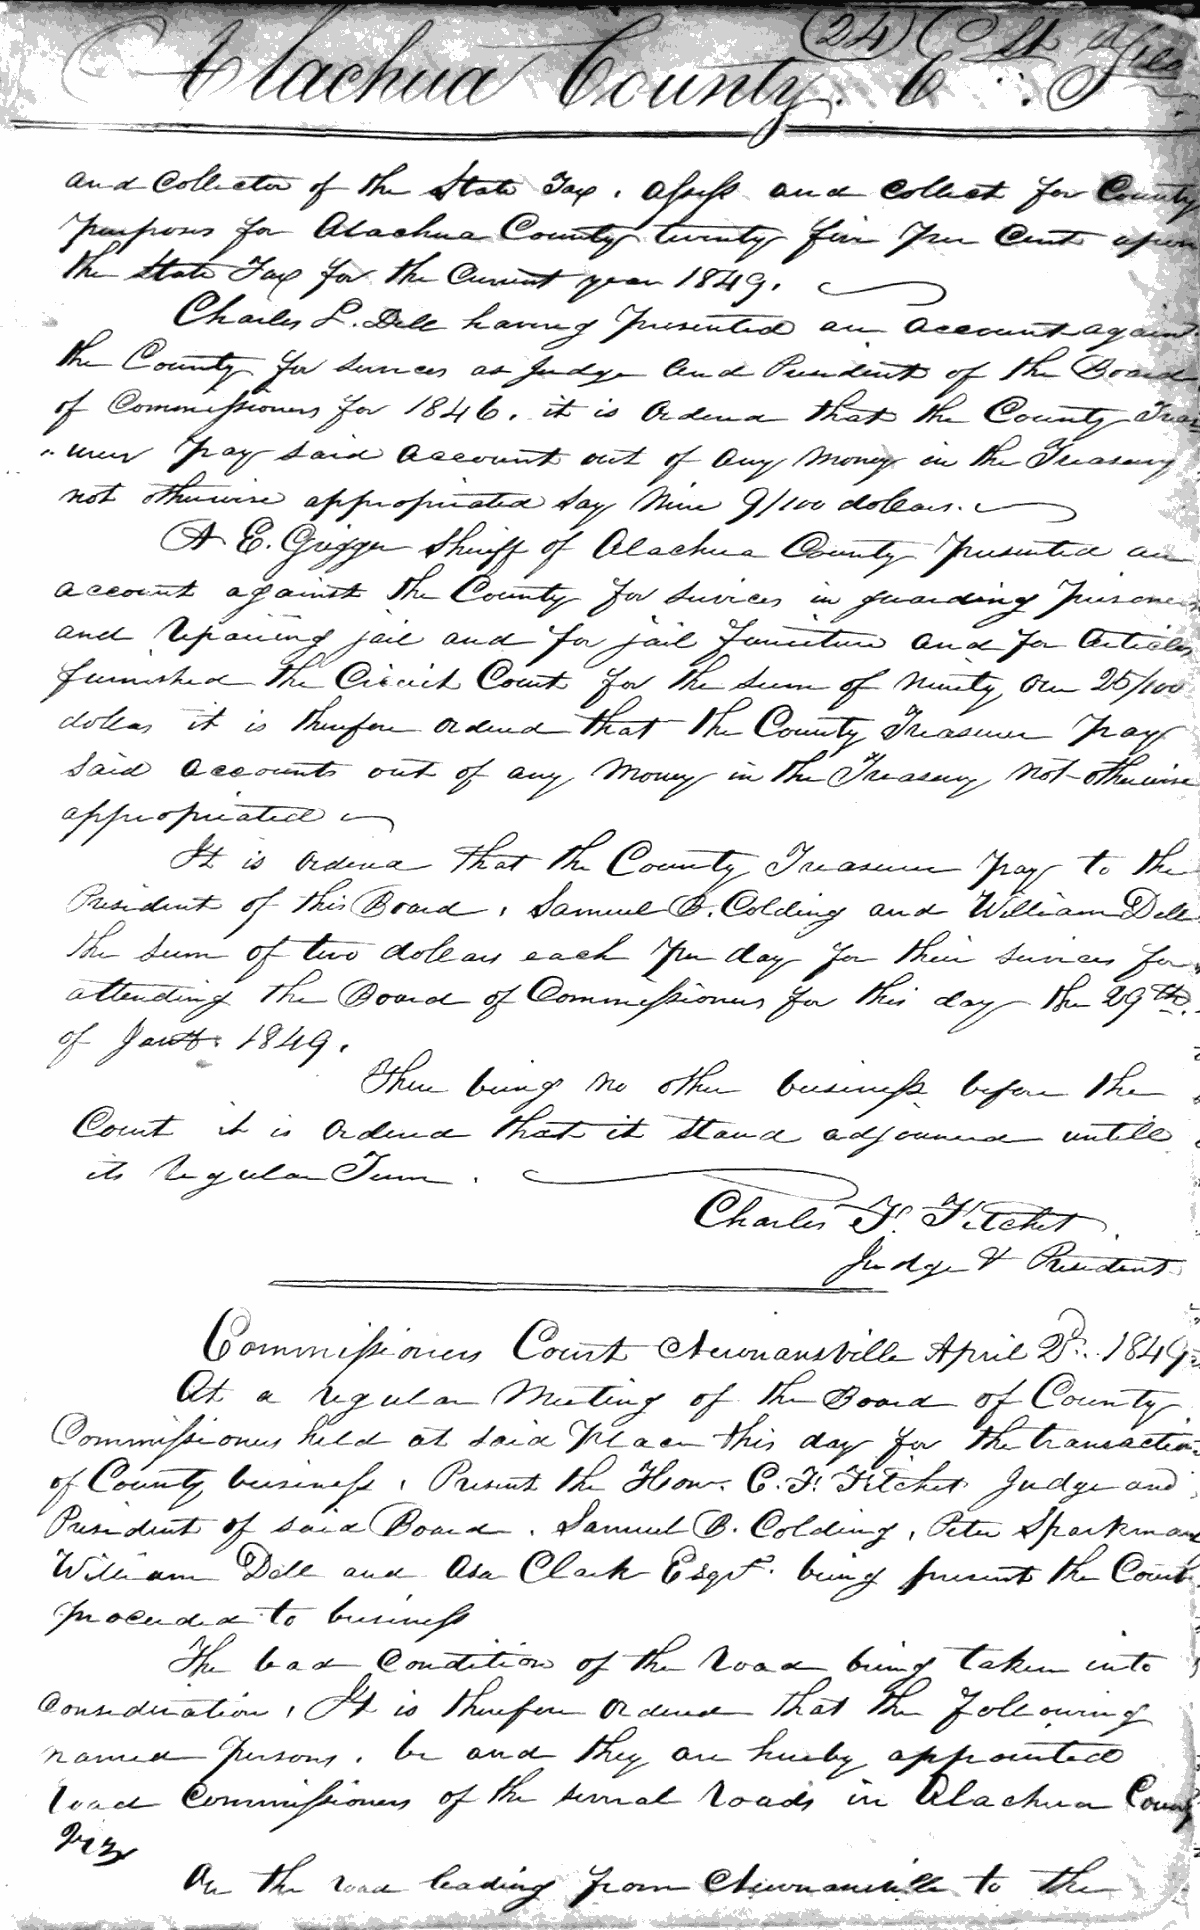 (24)
Alachua County. E. F.
and Collector of the State Tax, assess and Collect for County
purposes for Alachua County twenty five per Cent upon
the State Tax for the Current year 1849.
Charles L. Dell having presented an account against
the County for services as Judge and President of the Board
of Commissioners for 1846. it is Ordered that the County Treas-
"urer pay said account out of any money in the Treasury
not otherwise appropriated say Nine 9/100 dollars.
A E. Grigger Sheriff of Alachua County presented an
account against the County for services in guarding prisoners
and repairing jail and for jail furniture and for Articles
furnished the Circuit Court for the sum of Ninety One 25/100
dollars it is therefore ordered that the County Treasurer pay
said accounts out of any money in the Treasury not otherwise
appropriated
It is ordered that the County Treasurer pay to the
President of this Board, Samuel B. Colding and William Dell
the sum of two dollars each per day for their services for
attending the Board of Commissioners for this day the 29th.
of Jany. 1849.
There being no other business before the
Court it is Ordered that it stand adjourned untill
its regular Term.
Charles F. Fitchet.
Judge & President
Commissioners Court Newnansville April 2d. 1849
At a regular Meeting of the Board of County
Commissioners held at said place this day for the transaction
of County business, Present the Hon. C. F. Fitchet Judge and
President of said Board. Samuel B. Colding, Peter Sparkman
William Dell and Asa Clark Esqrs. being present the Court
proceeded to business
The bad Condition of the road being taken into
Consideration, It is therefore Ordered that the following
named persons, be and they are hereby appointed
road Commissioners of the several roads in Alachua County
Viz
On the road leading from Newnansville to the